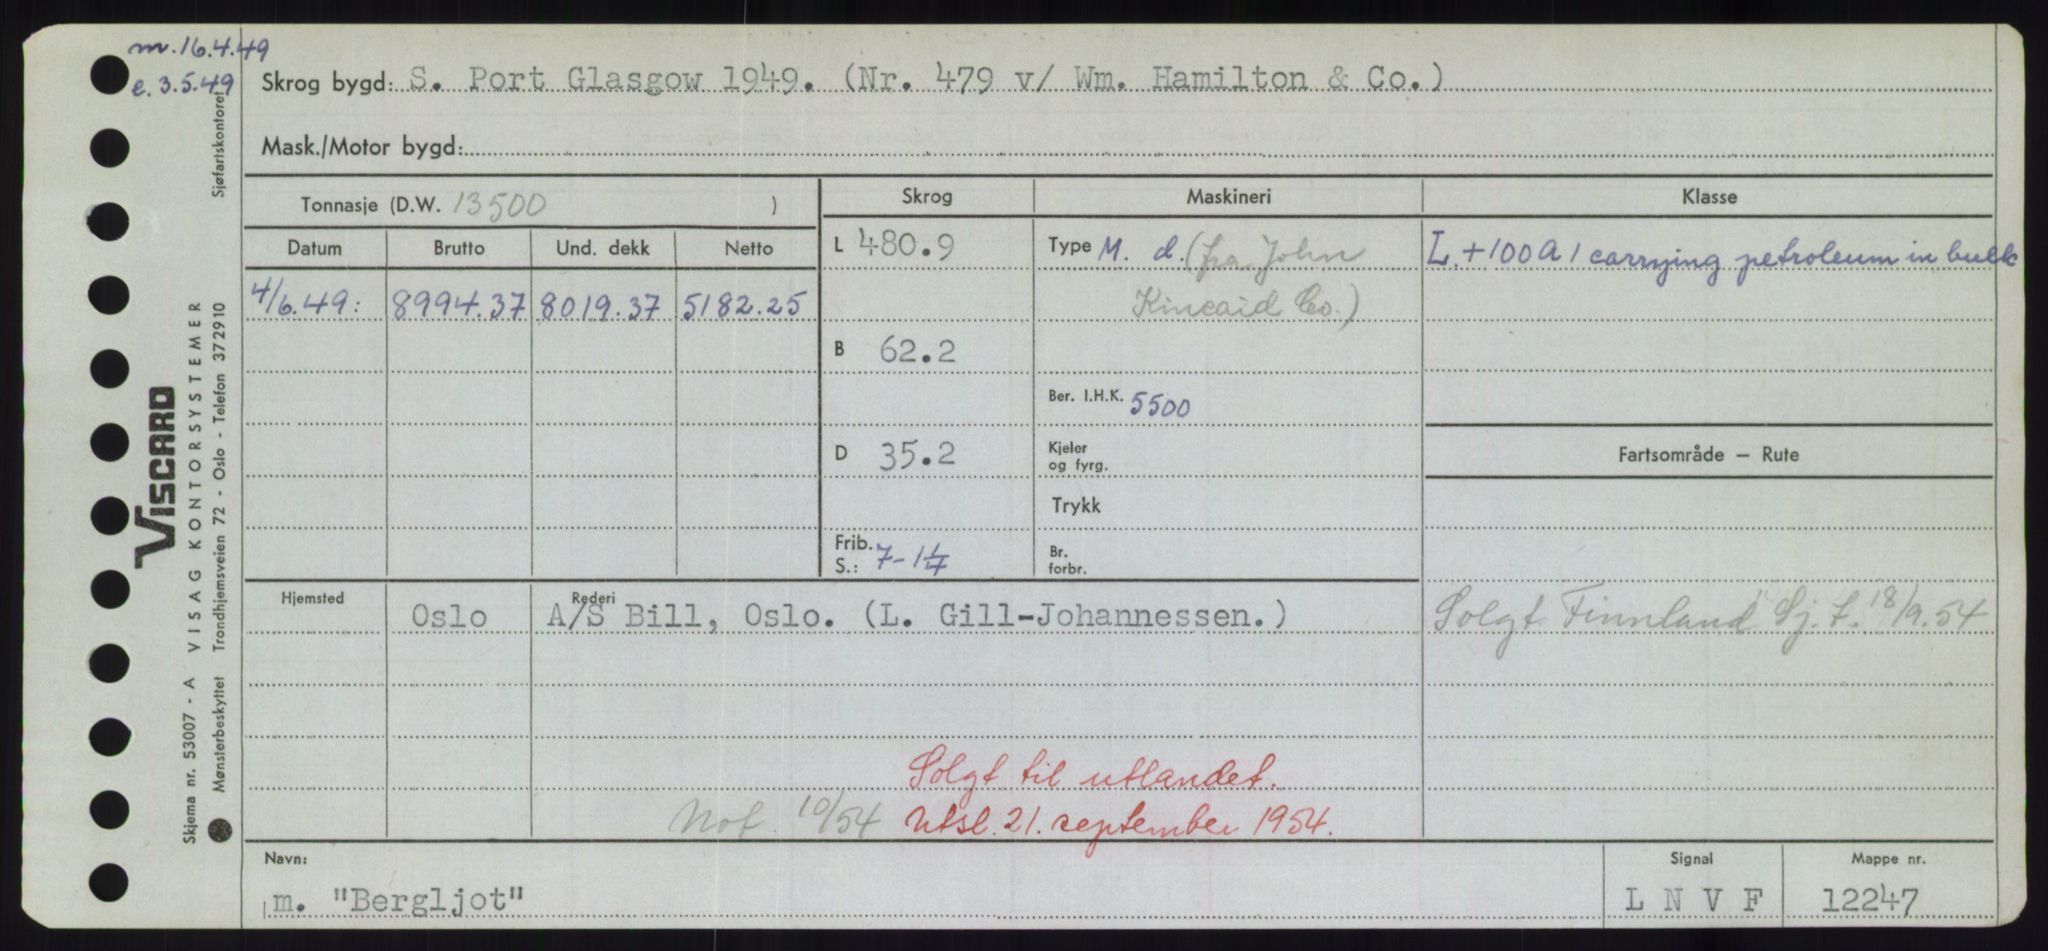 m. 16.4.49
e. 3.5.49
Skrog bygd: S. Port Glasgow 1949. (Nr. 479 v/ Wm. Hamilton & Co.)
Mask./Motor bygd:
Tonnasje (D.W. 13500 )
Skrog
Maskineri
Klasse
Datum
Brutto
Und. dekk
Netto
4/6.49:
8994.37
8019.37
5182.25
L 480.9
B 62.2
D 35.2
Frib. S.: 7-1 1/4
Type M. d. (fra John
Kincaid Co.)
Ber. I.H.K. 5500
Kjeler
og fyrg.
Trykk
Br.
forbr.
L. +100 A 1 carrying petroleum in bulk
Fartsområde – Rute
Solgt Finnland Sj. t. 18/9.54
Hjemsted
Rederi
Oslo
A/S Bill, Oslo. (L. Gill-Johannessen.)
Solgt til utlandet.
Not. 10/54 Utsl. 21. september 1954.
Navn:
m. "Bergljot"
Signal
L N V F
Mappe nr.
12247
VISCARD
Skjema nr. 53007 - A VISAG KONTORSYSTEMER
Mønsterbeskyttet Trondhjemsveien 72 - Oslo - Telefon 372910
Sjøfartskontoret